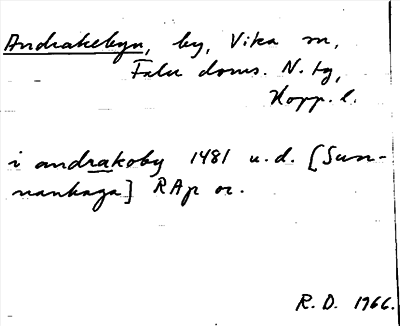 Andrakebyn, by, Vika sn,
Falu doms. N. tg,
Kopp. l.
i andrakoby 1481 u.d. [Sun-
nanhaga] RAp or.
R. D. 1966.